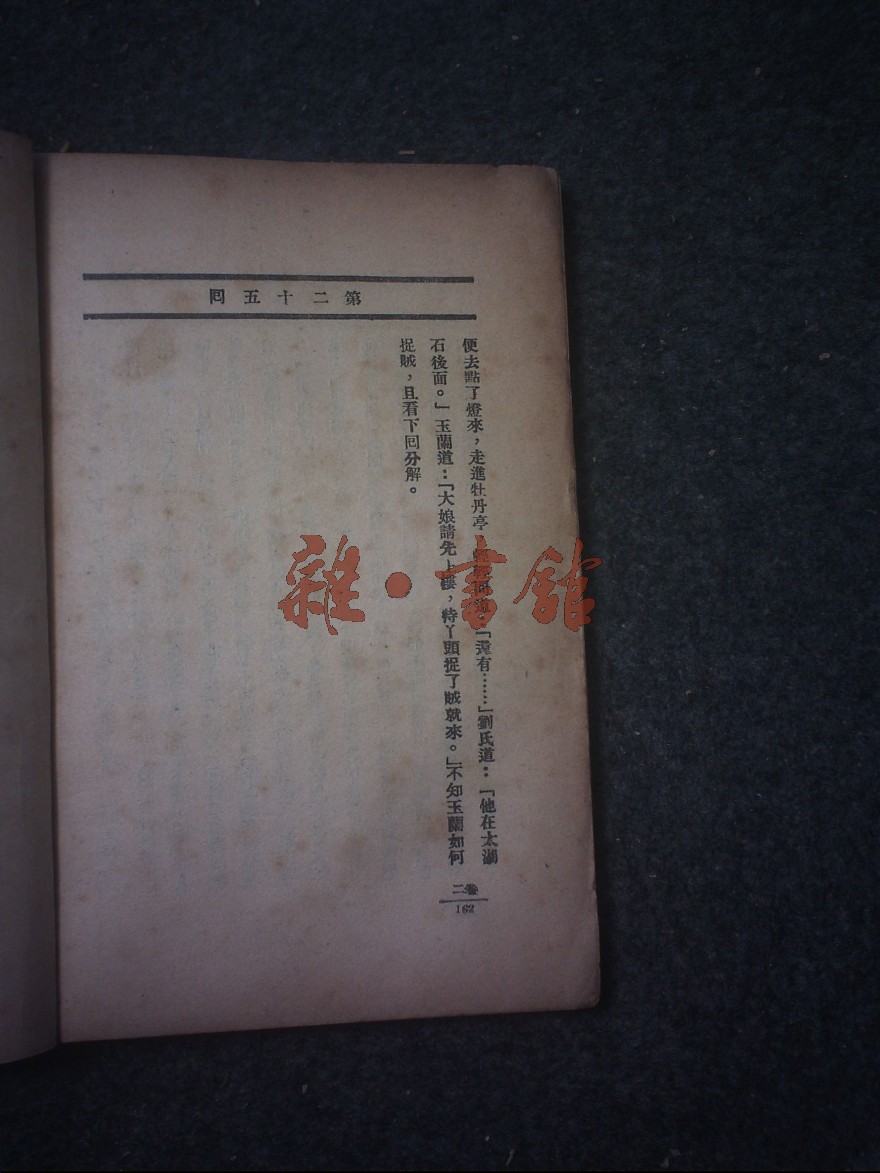 第二十五回
便去點了燈來，走進牡丹亭，問道：「還有……」劉氏道：「他在太湖
石後面。」玉蘭道：「大娘請先上樓，待丫頭捉了賊就來。」不知玉蘭如何
捉賊，且看下回分解。
卷二
162
雜·書館